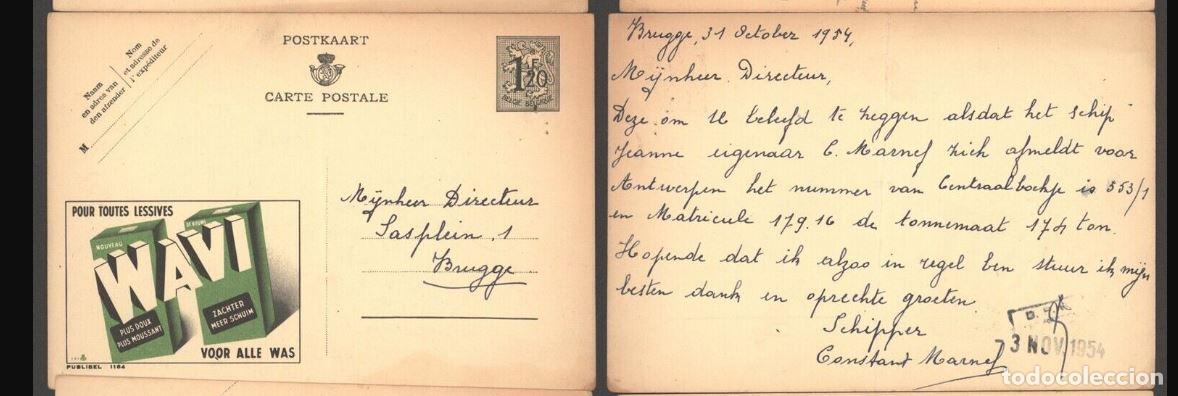 POSTKAART
CARTE POSTALE
Naam
en adres van
den afzender
Nom
et adresse de
l'expéditeur
M
1 F.
20
C
BELGIE BELGIQUE
POUR TOUTES LESSIVES
NOUVEAU
WAVI
PLUS DOUX
PLUS MOUSSANT
ZACHTER
MEER SCHUIM
VOOR ALLE WAS
PUBLIBEL 1184
Mijnheer Directeur
Sasplein, 1
Brugge
Brugge, 31 October 1954,
Mijnheer Directeur,
Deze om U beleefd te zeggen alsdat het schip
Jeanne eigenaar C. Marnef zich afmeldt voor
Antwerpen het nummer van Centraalboekje is 553/1
en Matricule 179.16 de tonnemaat 174 ton.
Hopende dat ik alzoo in regel ben stuur ik mijn
besten dank en oprechte groeten
Schipper
Constant Marnef
3 NOV. 1954
todocoleccion